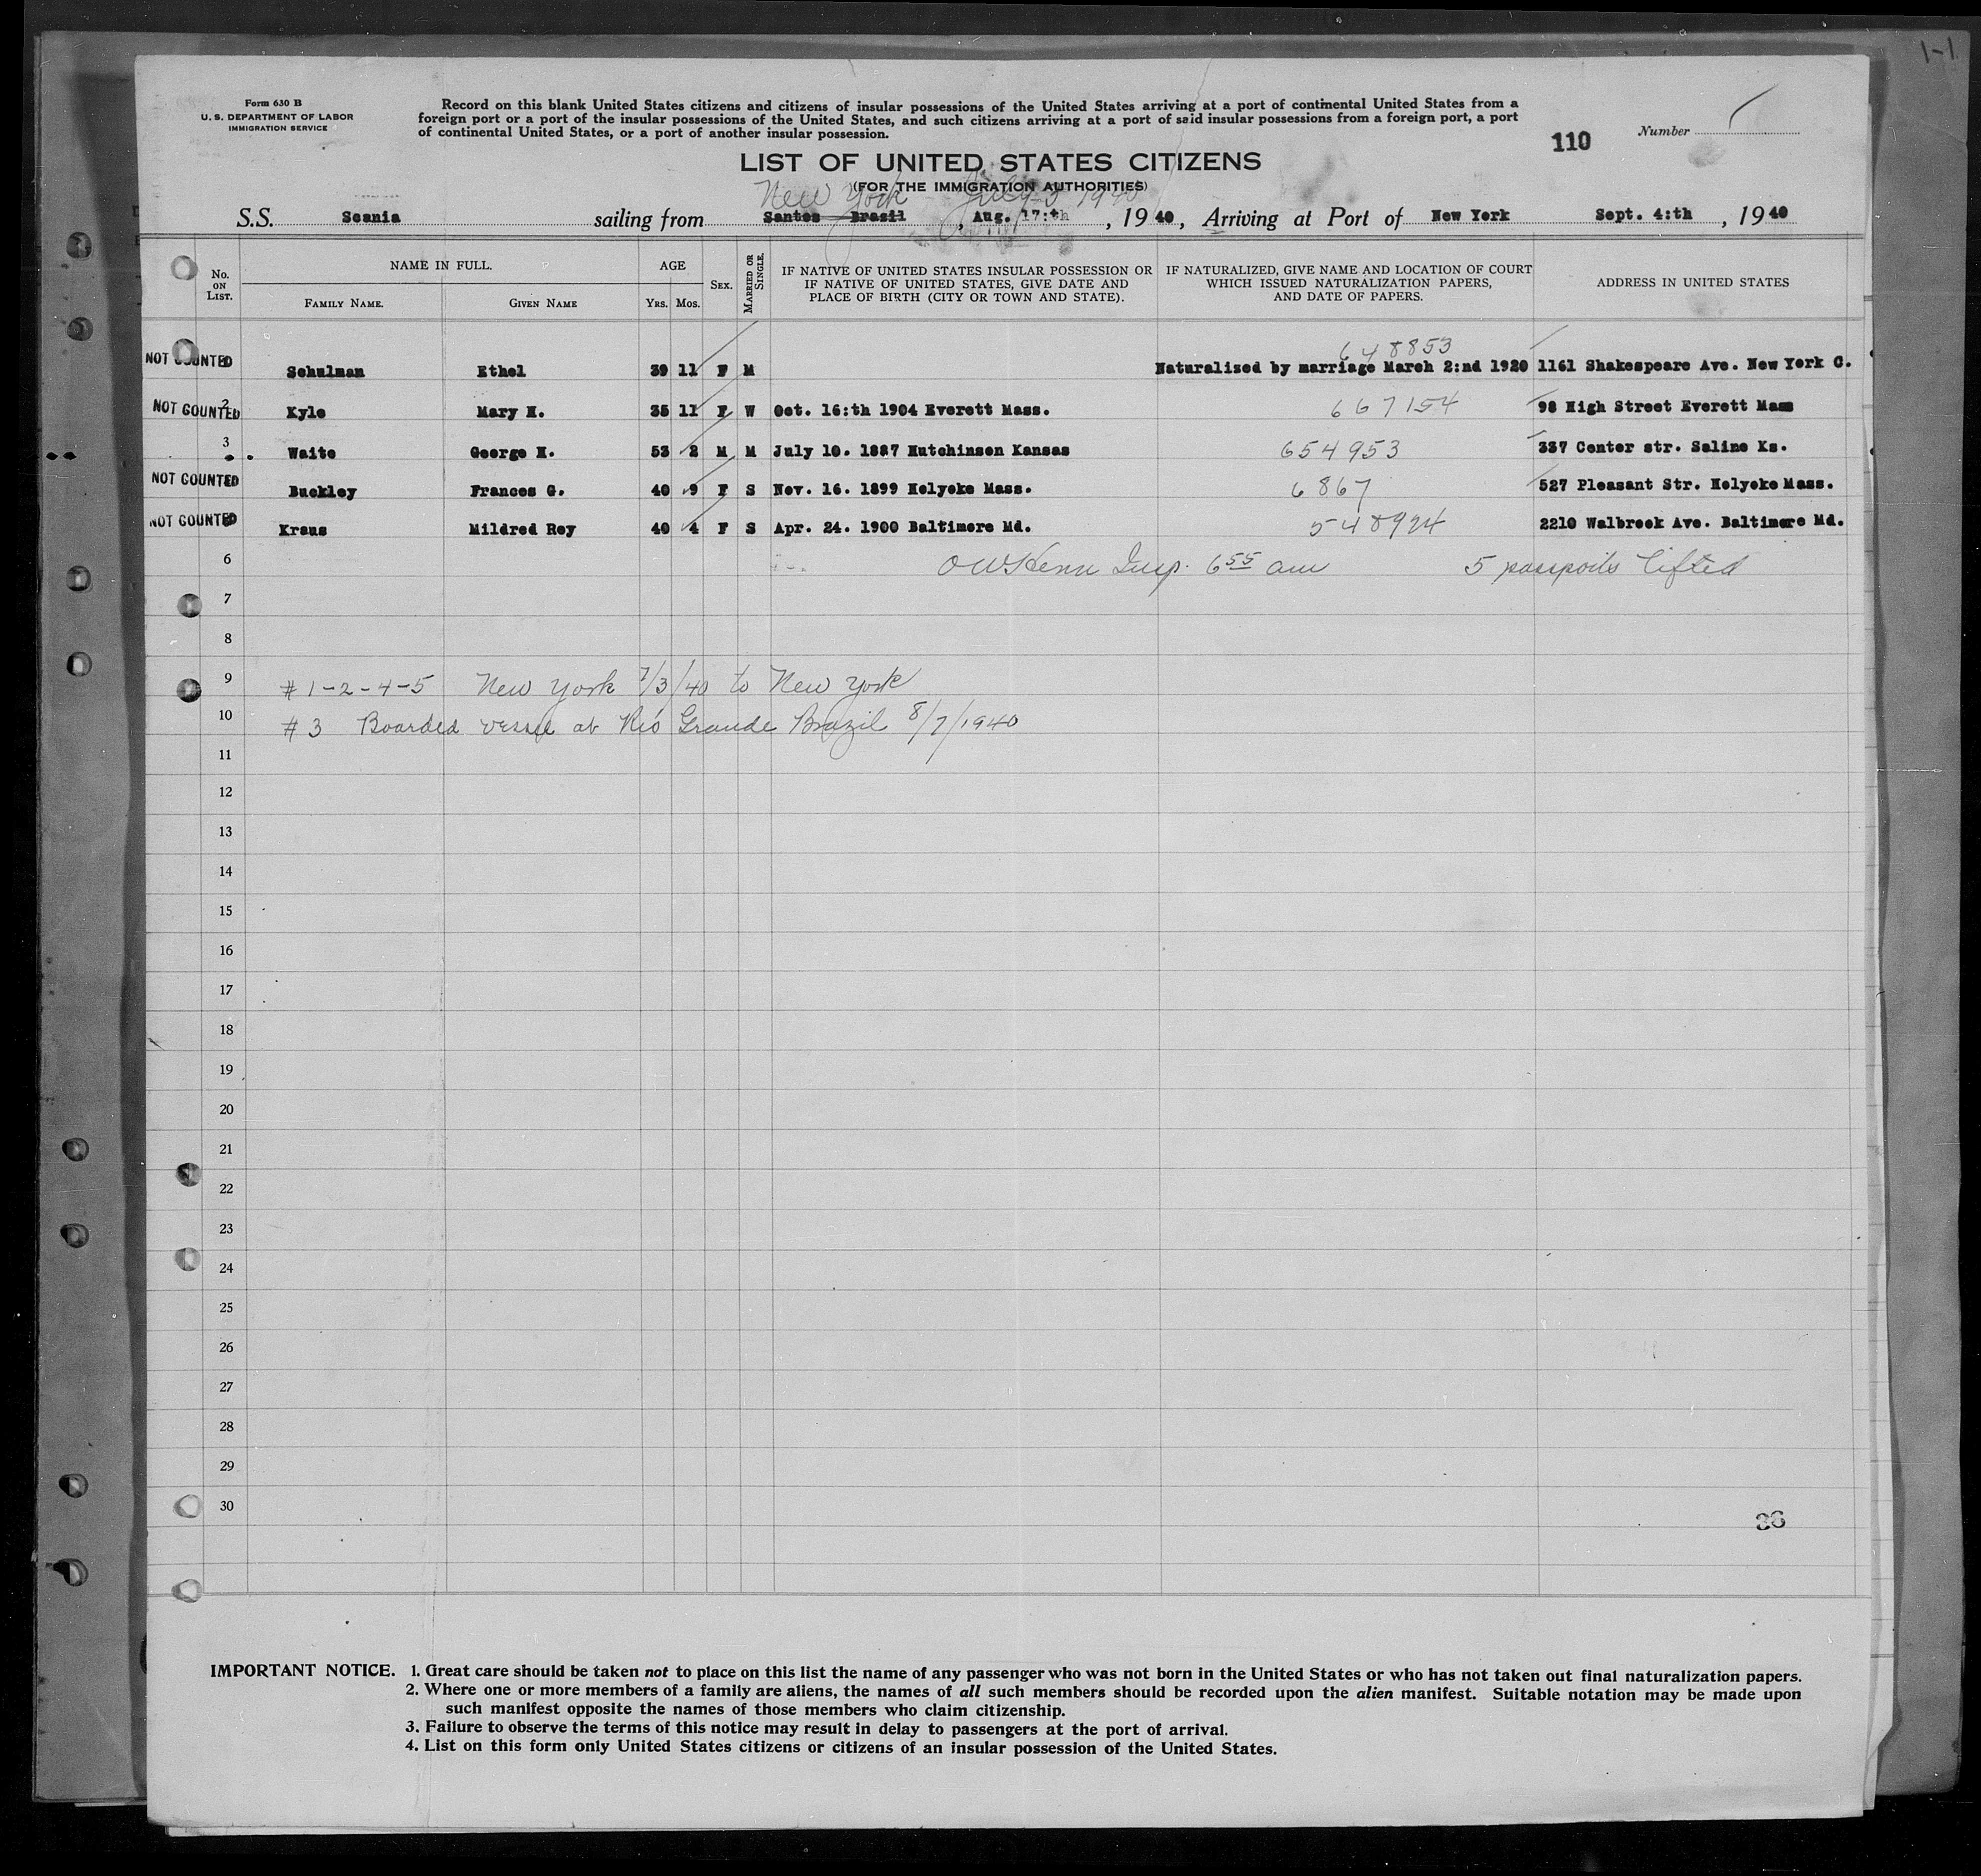 1-1
Form 630 B
U. S. DEPARTMENT OF LABOR
IMMIGRATION SERVICE
Record on this blank United States citizens and citizens of insular possessions of the United States arriving at a port of continental United States from a
foreign port or a port of the insular possessions of the United States, and such citizens arriving at a port of said insular possessions from a foreign port, a port
of continental United States, or a port of another insular possession.
110 Number
LIST OF UNITED STATES CITIZENS
(FOR THE IMMIGRATION AUTHORITIES)
New York July 3 1940
S.S. Scania sailing from Santos Brasil, Aug. 17:th, 1940, Arriving at Port of New York Sept. 4:th, 1940
No. ON LIST. NAME IN FULL. FAMILY NAME. GIVEN NAME AGE YRS. MOS. SEX. MARRIED OR SINGLE. IF NATIVE OF UNITED STATES INSULAR POSSESSION OR IF NATIVE OF UNITED STATES, GIVE DATE AND PLACE OF BIRTH (CITY OR TOWN AND STATE). IF NATURALIZED, GIVE NAME AND LOCATION OF COURT WHICH ISSUED NATURALIZATION PAPERS, AND DATE OF PAPERS. ADDRESS IN UNITED STATES
648853
NOT COUNTED Schulman Ethel 39 11 F M Naturalized by marriage March 2:nd 1920 1161 Shakespeare Ave. New York C.
NOT COUNTED 2 Kyle Mary H. 35 11 F W Oct. 16:th 1904 Everett Mass. 667154 98 High Street Everett Mass
3 Waite George H. 53 2 M M July 10. 1887 Hutchinson Kansas 654953 337 Center str. Saline Ks.
NOT COUNTED Buckley Frances G. 40 9 F S Nov. 16. 1899 Holyoke Mass. 6867 527 Pleasant Str. Holyoke Mass.
NOT COUNTED Kraus Mildred Roy 40 4 F S Apr. 24. 1900 Baltimore Md. 548924 2210 Walbrook Ave. Baltimore Md.
6 Insp. 6 55 am 5 passports lifted
7
8
9 #1-2-4-5 New York 7/3/40 to New York
10 #3 Boarded vessel at Rio Grande Brazil 8/7/1940
11
12
13
14
15
16
17
18
19
20
21
22
23
24
25
26
27
28
29
30
86
IMPORTANT NOTICE. 1. Great care should be taken not to place on this list the name of any passenger who was not born in the United States or who has not taken out final naturalization papers.
2. Where one or more members of a family are aliens, the names of all such members should be recorded upon the alien manifest. Suitable notation may be made upon
such manifest opposite the names of those members who claim citizenship.
3. Failure to observe the terms of this notice may result in delay to passengers at the port of arrival.
4. List on this form only United States citizens or citizens of an insular possession of the United States.